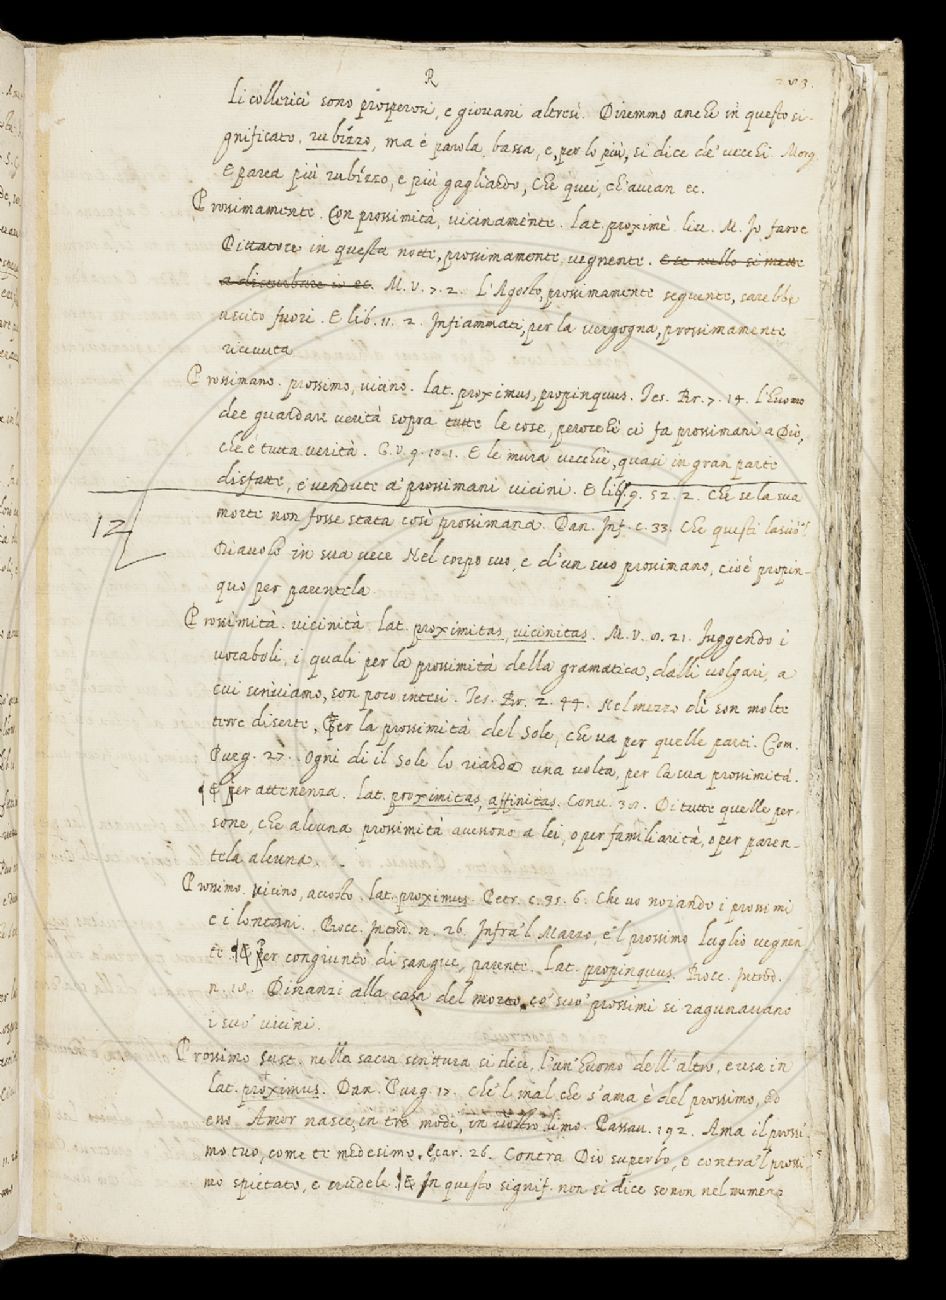 R
203.
Li collerici sono prosperosi, e giovani altresì. Diremmo anche in questo si-
gnificato, rubizzo, ma è parola bassa, e, per lo più, si dice de' vecchi Morg.
E parea più rubizzo, e più gagliardo, che quei, ch' avean ec.
Prossimamente. Con prossimità, vicinamente. lat. proximè. liv. M. Io faroe
Dittatore in questa notte, prossimamente, vegnente. E se nullo si mette
a disturbare io ec. M. V. 7. 2. L'Agosto, prossimamente seguente, sarebbe
uscito fuori. E lib. 11. 2. Infiammati, per la vergogna, prossimamente
ricevuta
Prossimano. prossimo, vicino. lat. proximus, propinquus. Tes. Br. 7. 14. l'huomo
dee guardare verità sopra tutte le cose, perocchè ci fa prossimani a Dio,
che è tutta verità. G. V. 9. 10. 1. E le mura vecchie, quasi in gran parte
disfatte, e vendute a' prossimani vicini. E lib. 9. 52. 2. Che se la sua
12
morte non fosse stata così prossimana. Dan. Inf. c. 33. Che questi lasciò 'l
Diavolo in sua vece Nel corpo suo, e d'un suo prossimano, cioè propin-
quo per parentela
Prossimità. vicinità. lat. proximitas, vicinitas. M. V. 8. 21. Fuggendo i
vocaboli, i quali per la prossimità della gramatica, dalli volgari, a
cui scriviamo, son poco intesi. Tes. Br. 2. 44. Nel mezzo dì son molte
terre diserte, per la prossimità del Sole, che va per quelle parti. Com.
Purg. 27. Ogni dì il Sole lo riarda una volta, per la sua prossimità.
¶ E per attenenza. lat. proximitas, affinitas. Conv. 38. Di tutte quelle per-
sone, che alcuna prossimità avenono a lei, o per familiarità, o per paren-
tela alcuna.
Prossimo. vicino, accosto. lat. proximus. Petr. c. 35. 6. Che vo noiando i prossimi
e i lontani. Bocc. Introd. n. 26. Infra 'l Marzo, e 'l prossimo Luglio vegnen
te. ¶ E Per congiunto di sangue, parente. lat. propinquus. Bocc. Introd.
n. 18. Dinanzi alla casa del morto, co' suo' prossimi si ragunavano
i suo' vicini.
Prossimo sust. nella sacra scrittura si dice, l'un' huomo dell'altro, e usa in
lat. proximus. Dan. Purg. 17. Che 'l mal, che s' ama è del prossimo, ed
esso Amor nasce, in tre modi, in vostro limo. Passav. 192. Ama il prossi-
mo tuo, come te medesimo. E car. 26. Contra Dio superbo, e contra 'l prossi-
mo spietato, e crudele. ¶ E In questo signif. non si dice se non nel numero